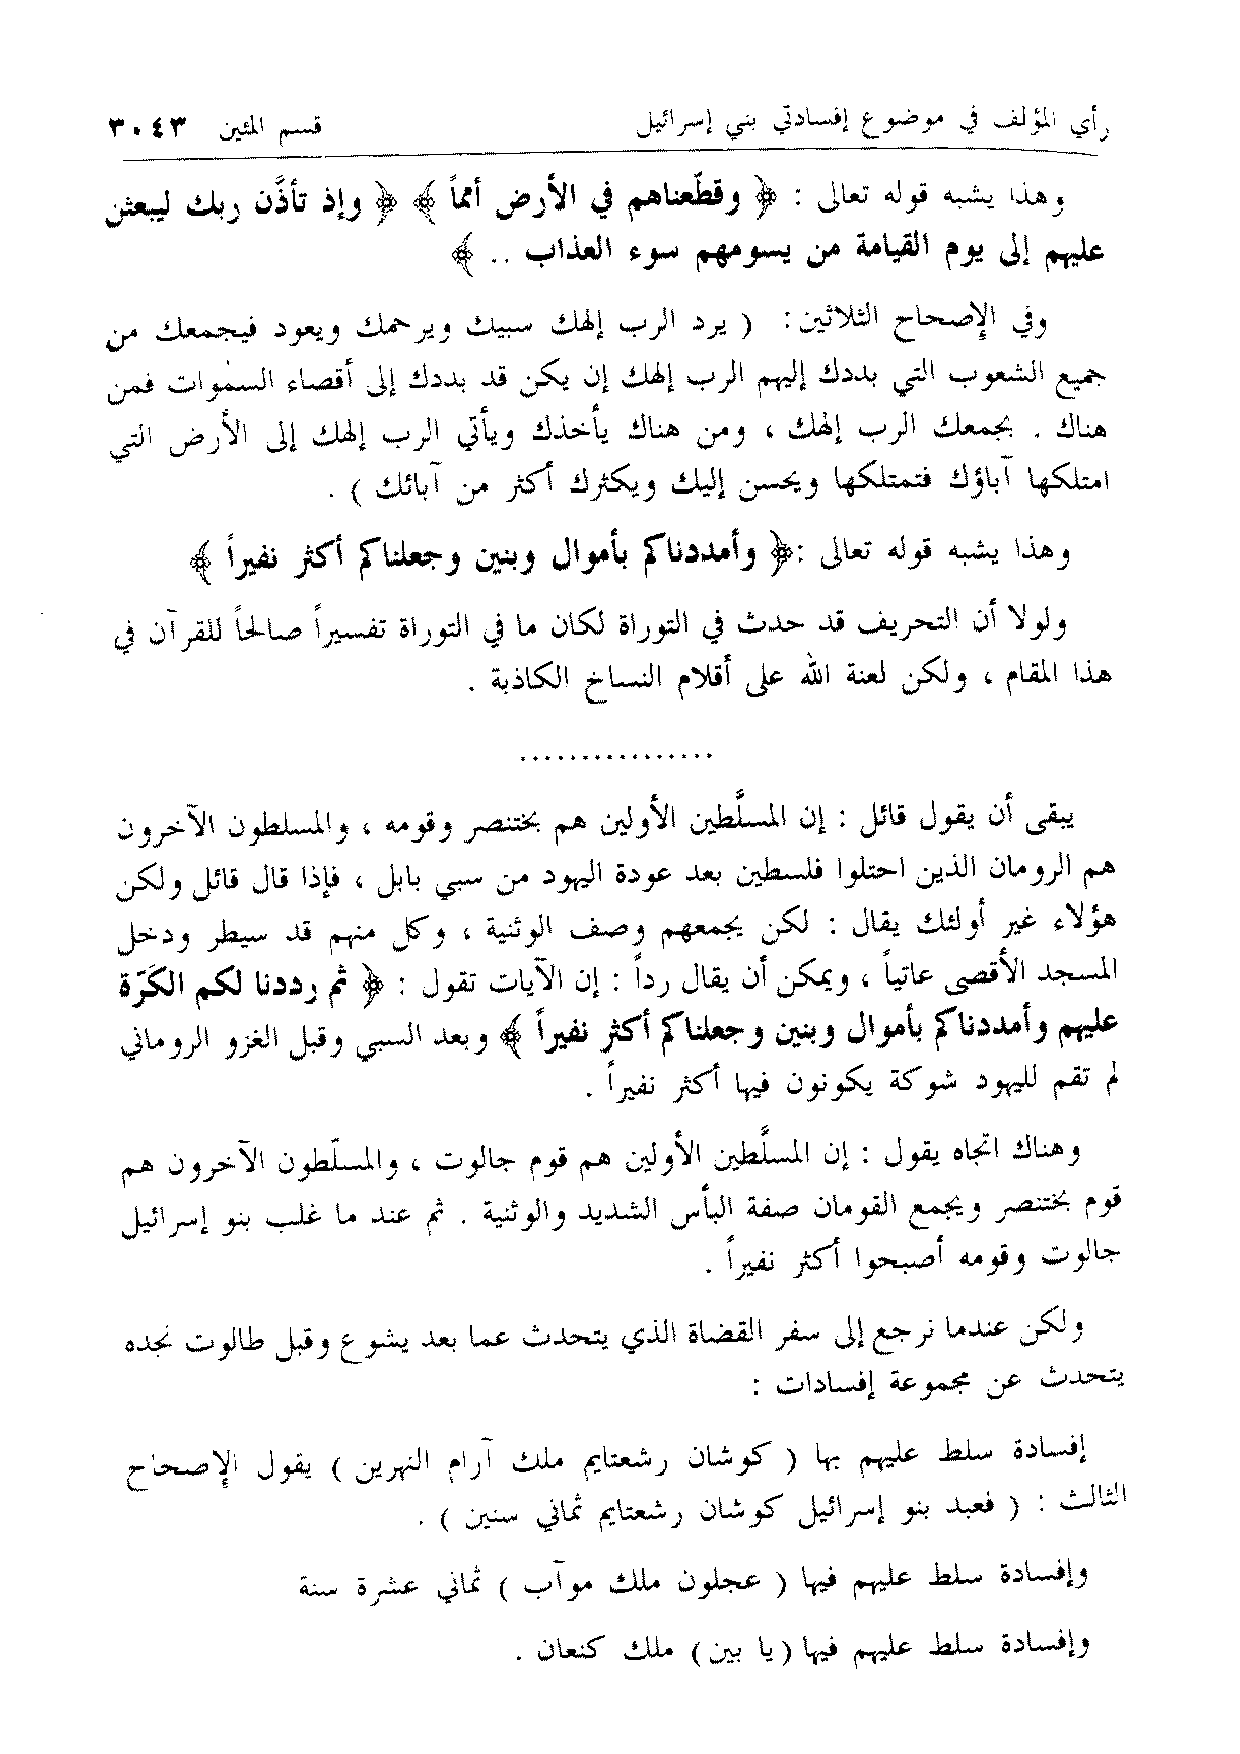 رأي المؤلف في موضوع إفسادتي بني إسرائيل قسم المئين ٣٠٤٣
وهذا يشبه قوله تعالى : ﴿ وقطّعناهم في الأرض أمماً ﴾ ﴿ وإذ تأذَّن ربك ليبعثن
عليهم إلى يوم القيامة من يسومهم سوء العذاب .. ﴾
وفي الإصحاح الثلاثين : ( يرد الرب إلهك سبيك ويرحمك ويعود فيجمعك من
جميع الشعوب التي بددك إليهم الرب إلهك إن يكن قد بددك إلى أقصاء السموات فمن
هناك . يجمعك الرب إلهك ، ومن هناك يأخذك ويأتي الرب إلهك إلى الأرض التي
امتلكها آباؤك فتمتلكها ويحسن إليك ويكثرك أكثر من آبائك ) .
وهذا يشبه قوله تعالى :﴿ وأمددناكم بأموال وبنين وجعلناكم أكثر نفيراً ﴾
ولولا أن التحريف قد حدث في التوراة لكان ما في التوراة تفسيراً صالحاً للقرآن في
هذا المقام ، ولكن لعنة الله على أقلام النساخ الكاذبة .
................
يبقى أن يقول قائل : إن المسلَّطين الأولين هم بختنصر وقومه ، والمسلطون الآخرون
هم الرومان الذين احتلوا فلسطين بعد عودة اليهود من سبي بابل ، فإذا قال قائل ولكن
هؤلاء غير أولئك يقال : لكن يجمعهم وصف الوثنية ، وكل منهم قد سيطر ودخل
المسجد الأقصى عاتياً ، ويمكن أن يقال رداً : إن الآيات تقول : ﴿ ثم رددنا لكم الكرّة
عليهم وأمددناكم بأموال وبنين وجعلناكم أكثر نفيراً ﴾ وبعد السبي وقبل الغزو الروماني
لم تقم لليهود شوكة يكونون فيها أكثر نفيراً .
وهناك اتجاه يقول : إن المسلَّطين الأولين هم قوم جالوت ، والمسلّطون الآخرون هم
قوم بختنصر ويجمع القومان صفة البأس الشديد والوثنية . ثم عند ما غلب بنو إسرائيل
جالوت وقومه أصبحوا أكثر نفيراً .
ولكن عندما نرجع إلى سفر القضاة الذي يتحدث عما بعد يشوع وقبل طالوت نجده
يتحدث عن مجموعة إفسادات :
إفسادة سلط عليهم بها ( كوشان رشعتايم ملك آرام النهرين ) يقول الإصحاح
الثالث : ( فعبد بنو إسرائيل كوشان رشعتايم ثماني سنين ) .
وإفسادة سلط عليهم فيها ( عجلون ملك موآب ) ثماني عشرة سنة
وإفسادة سلط عليهم فيها (يا بين) ملك كنعان .